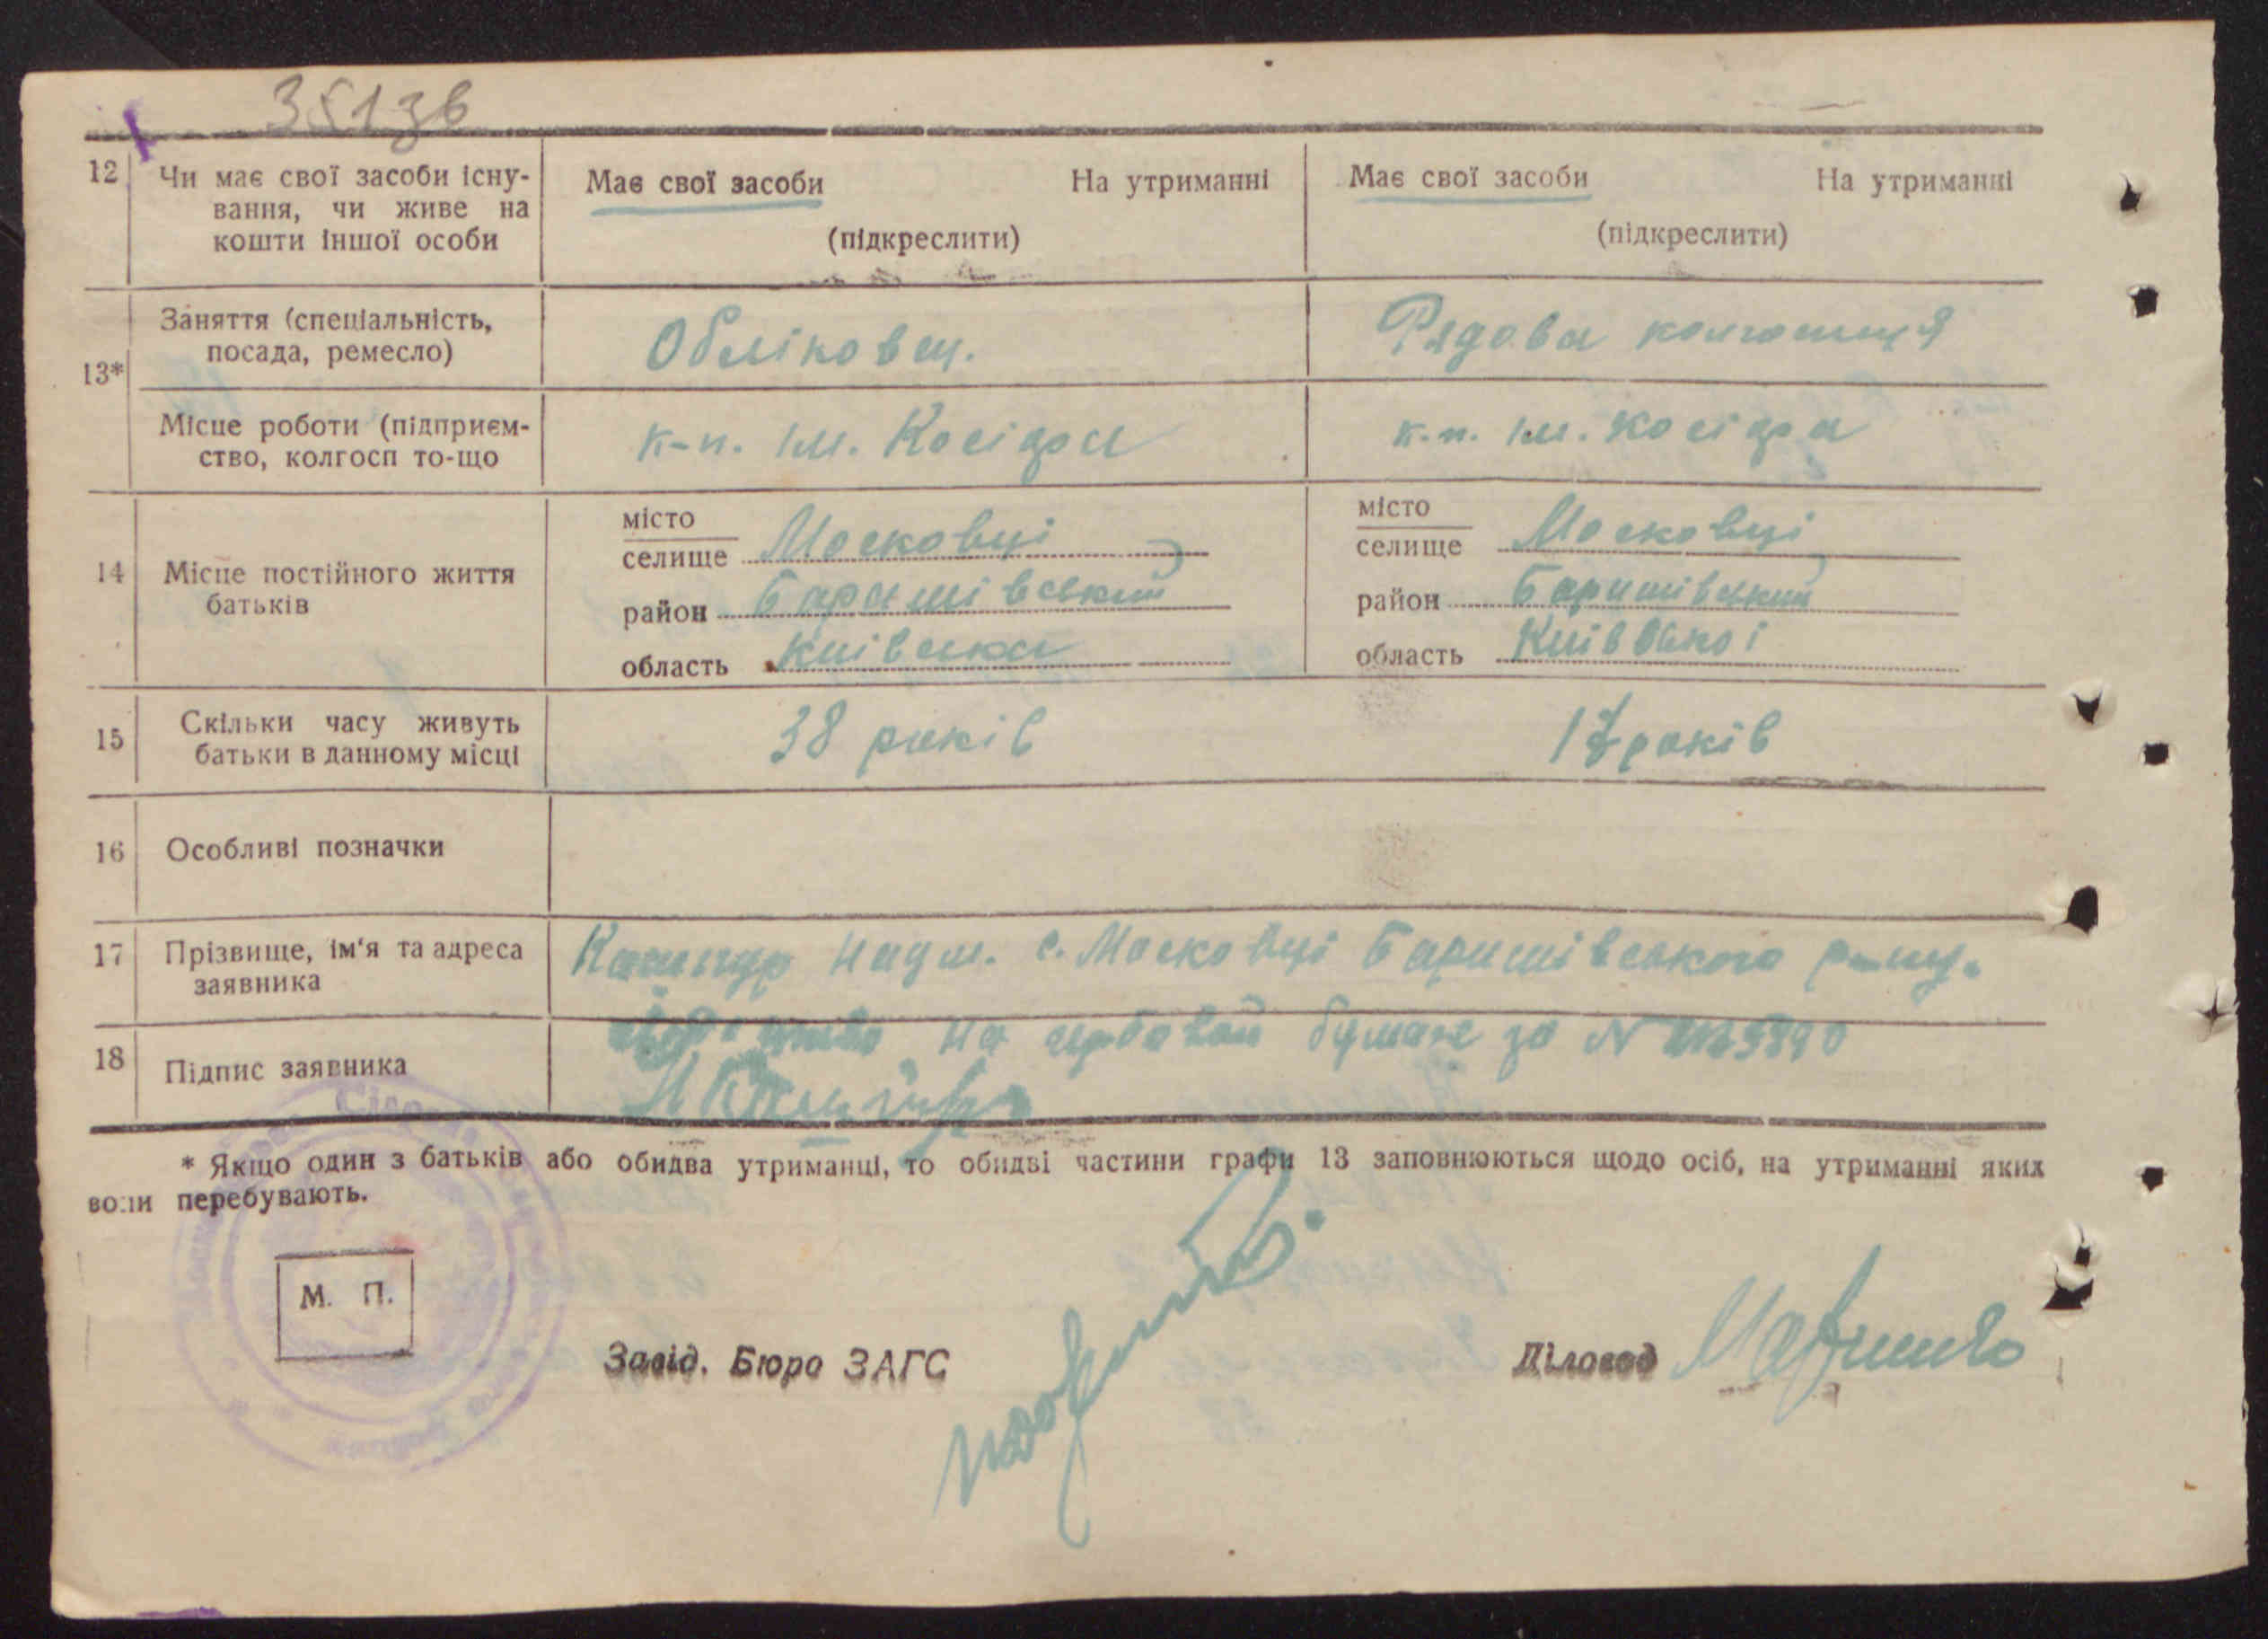 35136
12 Чи має свої засоби існу-
вання, чи живе на
кошти іншої особи
Має свої засоби На утриманні
(підкреслити)
Має свої засоби На утриманні
(підкреслити)
13*
Заняття (спеціальність,
посада, ремесло)
Обліковец.
Рядова колгоспниця
Місце роботи (підприєм-
ство, колгосп то-що
к-п. ім. Косіора
к.п. ім. Косіора
14 Місце постійного життя
батьків
місто
селище Московці
район Баришівський
область Київська
місто
селище Московці
район Баришівський
область Київської
15 Скільки часу живуть
батьки в данному місці
38 років
17 років
16 Особливі позначки
17 Прізвище, ім'я та адреса
заявника
Кашпур с. Московці Баришівського
на гербовой бумаге за №
18 Підпис заявника
* Якщо один з батьків або обидва утриманці, то обидві частини графи 13 заповнюються щодо осіб, на утриманні яких
вони перебувають.
М. П.
Завід. Бюро ЗАГС
Діловод